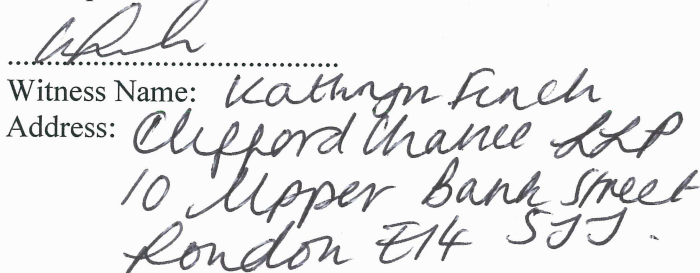 Witness Name: Kathryn Finch
Address: Clifford Chance LLP
10 Upper Bank Street
London E14 5JJ.